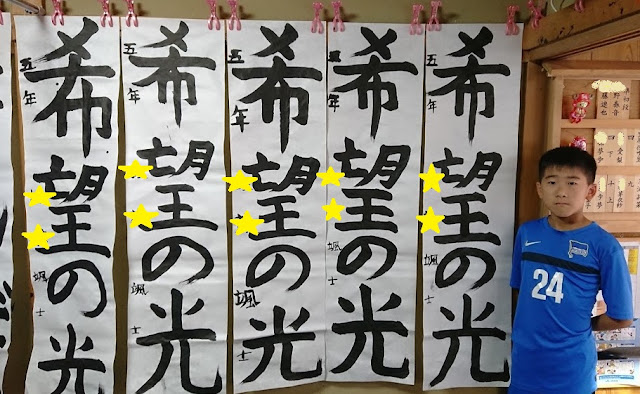 希望の光
五年 颯士
希望の光
五年 颯士
希望の光
五年 颯士
希望の光
五年 颯士
希望の光
五年 颯士
24